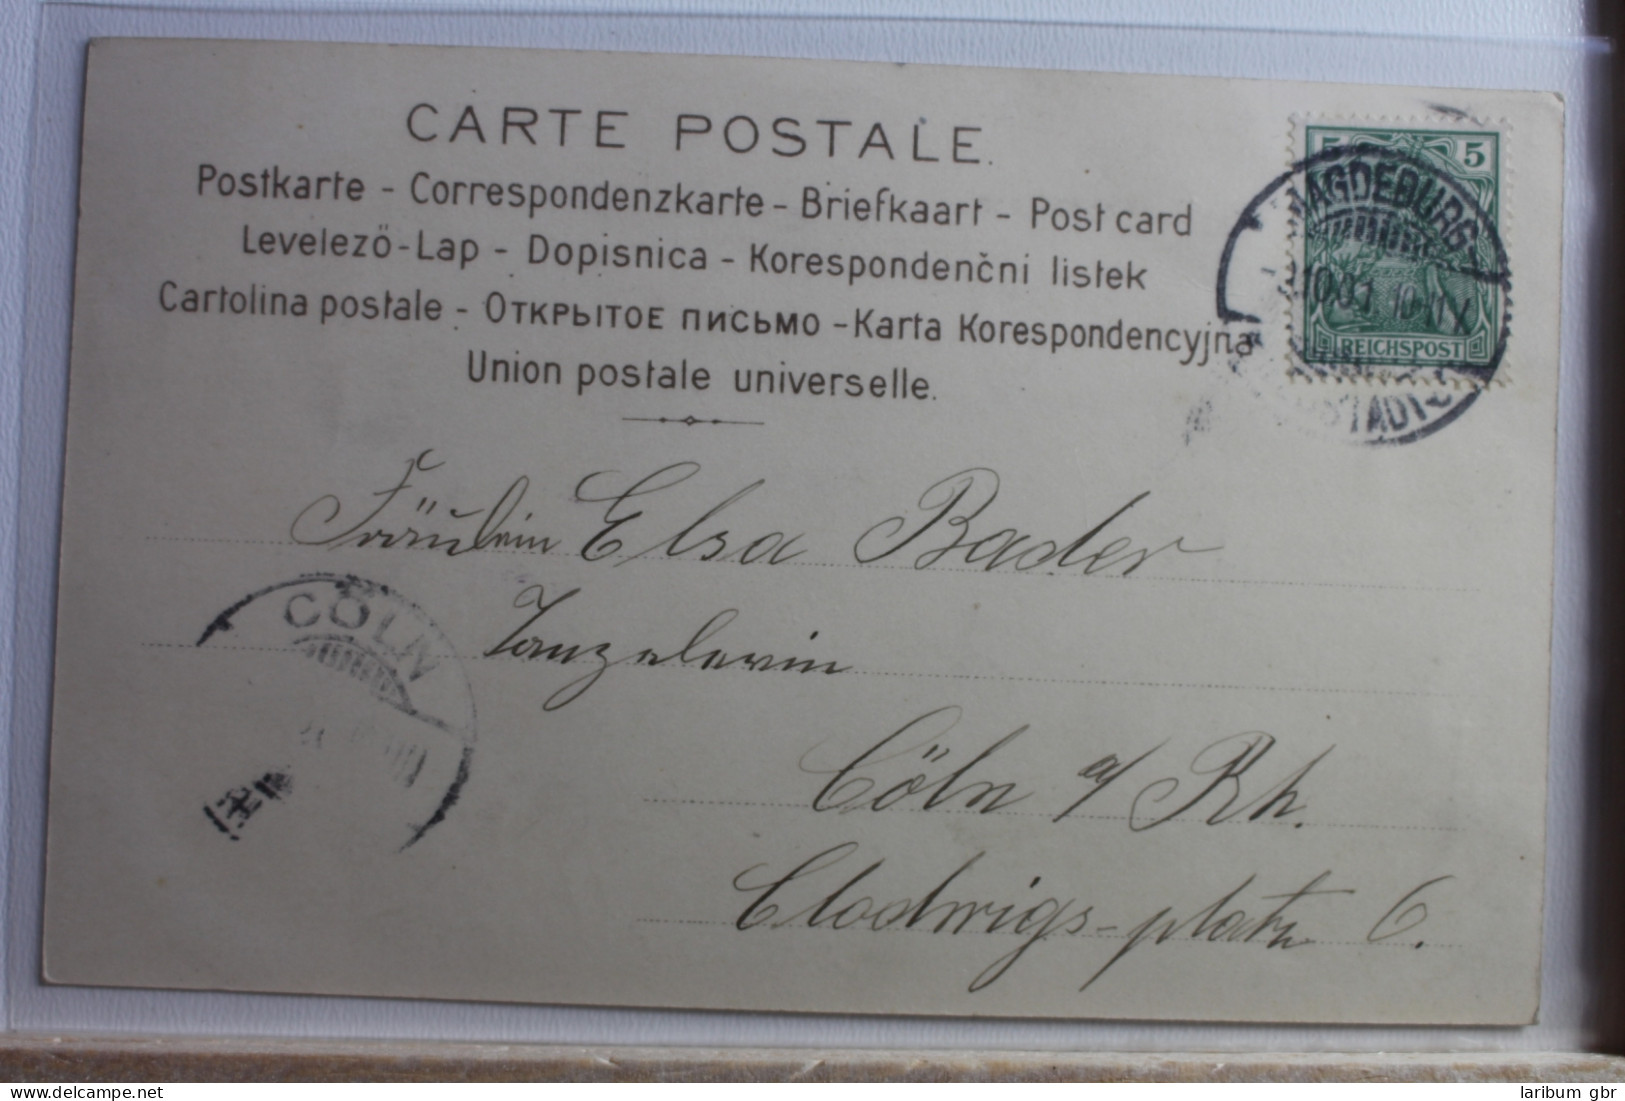 CARTE POSTALE.
Postkarte - Correspondenzkarte - Briefkaart - Post card
Levelező-Lap - Dopisnica - Korespondenční listek
Cartolina postale - Открытое письмо - Karta Korespondencyjna
Union postale universelle.
5 5
MAGDEBURG
REICHSPOST
Fräulein Elsa Bader
CÖLN
Cöln a/ Rh.
Clodwigs-platz 6.
www.delcampe.net
laribum gbr